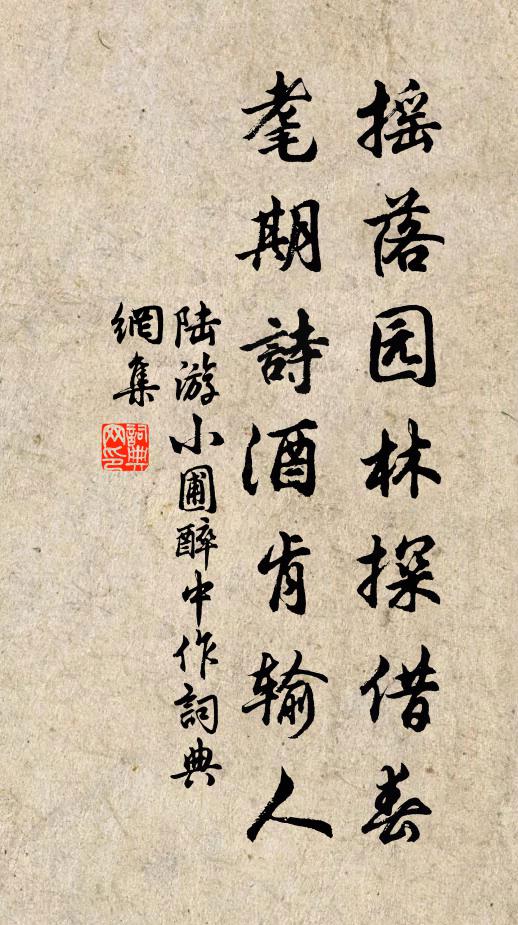 摇落园林探借春
耄期詩酒肯输人
陆游小圃醉中作詞典
網集
詞典
网印